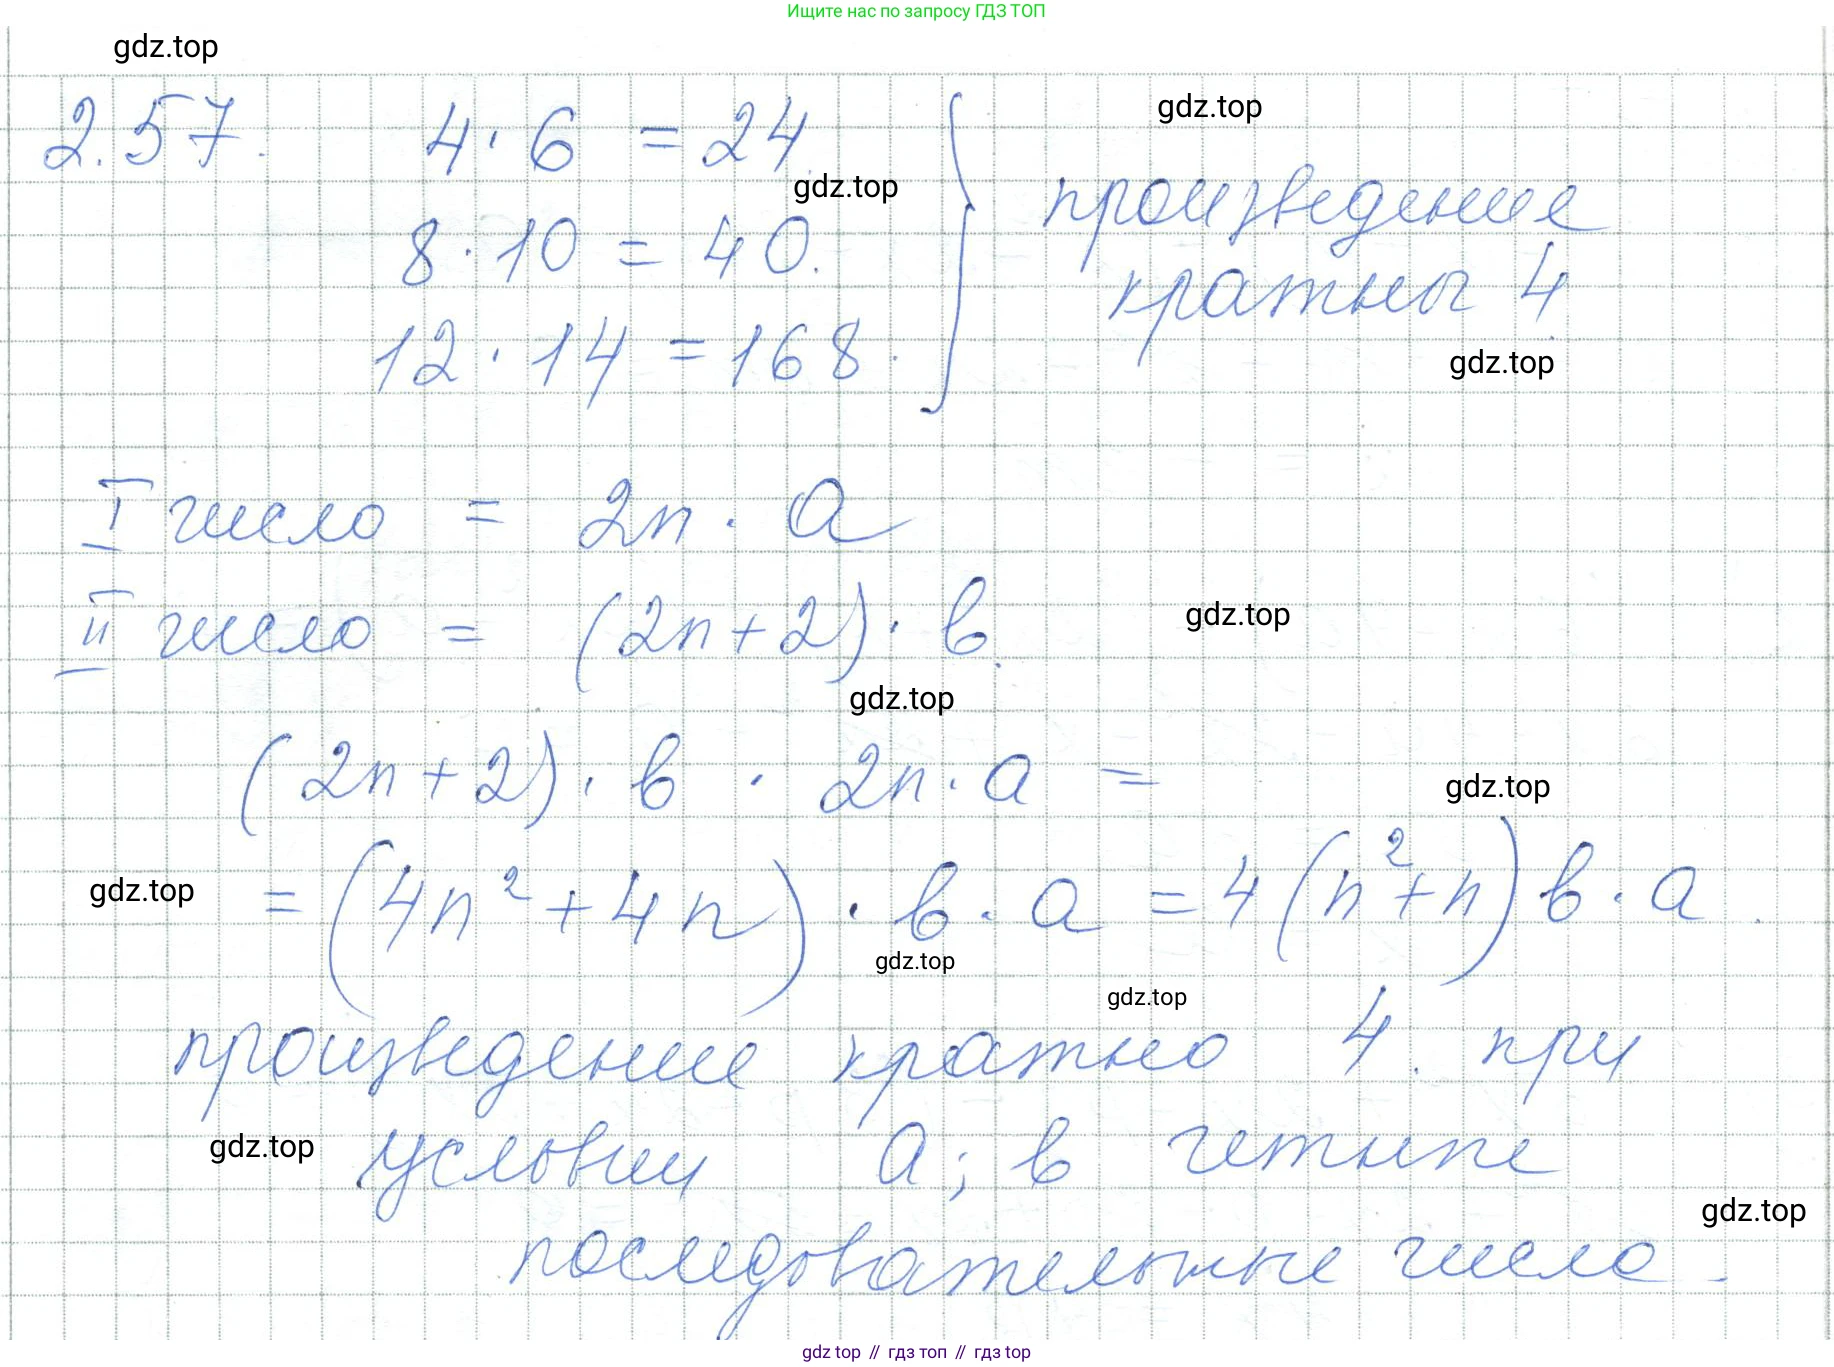 Ищите нас по запросу ГДЗ ТОП
gdz.top
2.57. 4 · 6 = 24
gdz.top
gdz.top
8 · 10 = 40.
произведение
кратны 4.
12 · 14 = 168.
gdz.top
I число = 2n · a
II число = (2n+2) · в.
gdz.top
gdz.top
(2n+2) · в · 2n · a =
gdz.top
gdz.top
= (4n² + 4n) · в · a = 4(n²+n) в · a.
gdz.top
gdz.top
произведение кратно 4. при
условии a; в четные
gdz.top
gdz.top
последовательные числа.
gdz top // гдз топ // гдз top